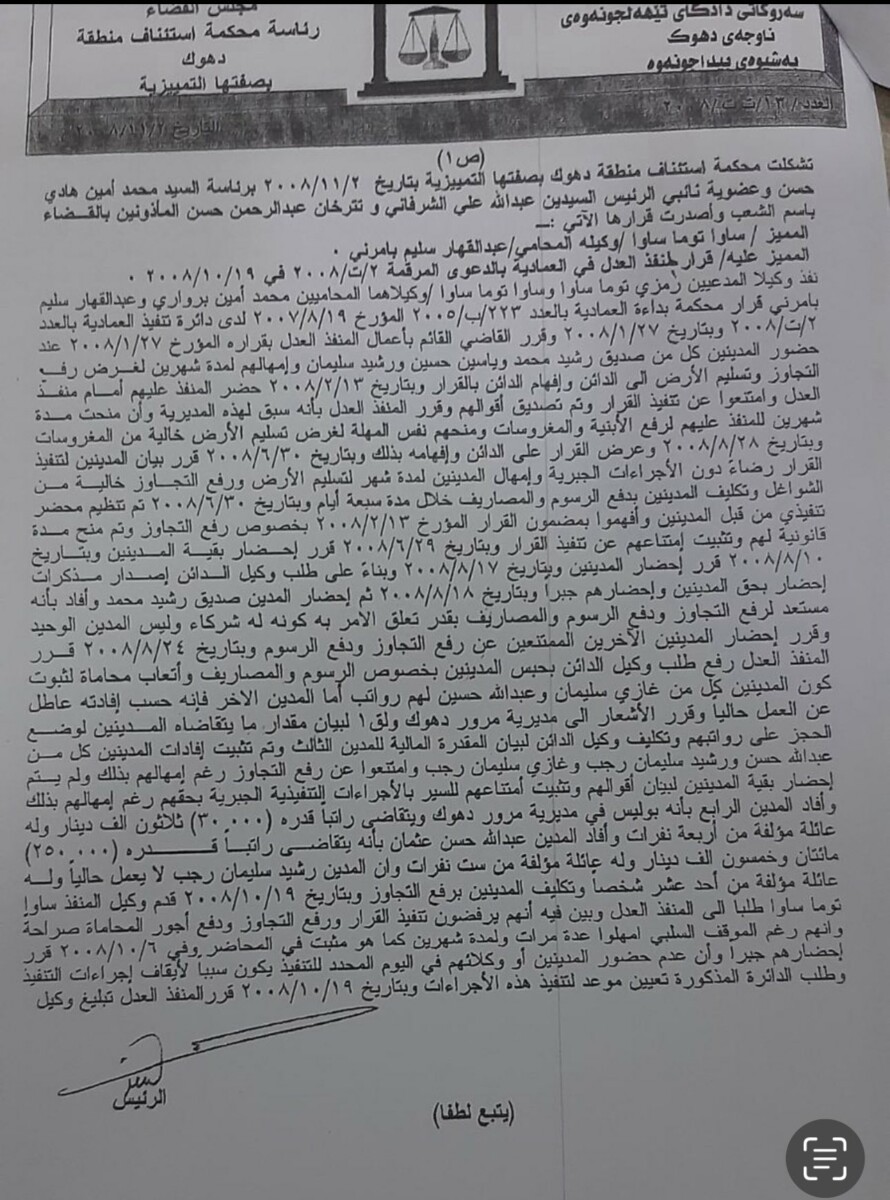 مجلس القضاء
رئاسة محكمة استئناف منطقة
دهوك
بصفتها التمييزية
سەروکاتی دادگای تێهەلچونەوەی
ناوچەی دهوک
بەشیوەی پیداچونەوە
العدد/ ١٣/ت ت/٢٠٠٨
التاريخ ٢٠٠٨/١١/٢
(ص١)
تشكلت محكمة استئناف منطقة دهوك بصفتها التمييزية بتاريخ ٢٠٠٨/١١/٢ برئاسة السيد محمد أمين هادي
حسن وعضوية نائبي الرئيس السيدين عبدالله علي الشرفاني و تترخان عبدالرحمن حسن المأذونين بالقضاء
باسم الشعب وأصدرت قرارها الآتي :ــ
المميز / ساوا توما ساوا /وكيله المحامي/عبدالقهار سليم بامرني .
المميز عليه/ قرار منفذ العدل في العمادية بالدعوى المرقمة ٢/ت/٢٠٠٨ في ٢٠٠٨/١٠/١٩ .
نفذ وكيلا المدعيين رمزي توما ساوا وساوا توما ساوا /وكيلاهما المحاميين محمد أمين برواري وعبدالقهار سليم
بامرني قرار محكمة بداءة العمادية بالعدد ٢٢٣/ب/٢٠٠٥ المؤرخ ٢٠٠٧/٨/١٩ لدى دائرة تنفيذ العمادية بالعدد
٢/ت/٢٠٠٨ وبتاريخ ٢٠٠٨/١/٢٧ وقرر القاضي القائم بأعمال المنفذ العدل بقراره المؤرخ ٢٠٠٨/١/٢٧ عند
حضور المدينين كل من صديق رشيد محمد وياسين حسين ورشيد سليمان وإمهالهم لمدة شهرين لغرض رفع
التجاوز وتسليم الأرض الى الدائن وإفهام الدائن بالقرار وبتاريخ ٢٠٠٨/٢/١٣ حضر المنفذ عليهم أمام منفذ
العدل وامتنعوا عن تنفيذ القرار وتم تصديق أقوالهم وقرر المنفذ العدل بأنه سبق لهذه المديرية وأن منحت مدة
شهرين للمنفذ عليهم لرفع الأبنية والمغروسات ومنحهم نفس المهلة لغرض تسليم الأرض خالية من المغروسات
وبتاريخ ٢٠٠٨/٨/٢٨ وعرض القرار على الدائن وإفهامه بذلك وبتاريخ ٢٠٠٨/٦/٣٠ قرر بيان المدينين لتنفيذ
القرار رضاءً دون الأجراءات الجبرية وإمهال المدينين لمدة شهر لتسليم الأرض ورفع التجاوز خالية من
الشواغل وتكليف المدينين بدفع الرسوم والمصاريف خلال مدة سبعة أيام وبتاريخ ٢٠٠٨/٦/٣٠ تم تنظيم محضر
تنفيذي من قبل المدينين وأفهموا بمضمون القرار المؤرخ ٢٠٠٨/٢/١٣ بخصوص رفع التجاوز وتم منح مدة
قانونية لهم وتثبيت إمتناعهم عن تنفيذ القرار وبتاريخ ٢٠٠٨/٦/٢٩ قرر إحضار بقية المدينين وبتاريخ
٢٠٠٨/٨/١٠ قرر إحضار المدينين وبتاريخ ٢٠٠٨/٨/١٧ وبناءً على طلب وكيل الدائن إصدار مذكرات
إحضار بحق المدينين وإحضارهم جبراً وبتاريخ ٢٠٠٨/٨/١٨ ثم إحضار المدين صديق رشيد محمد وأفاد بأنه
مستعد لرفع التجاوز ودفع الرسوم والمصاريف بقدر تعلق الامر به كونه له شركاء وليس المدين الوحيد
وقرر إحضار المدينين الآخرين الممتنعين عن رفع التجاوز ودفع الرسوم وبتاريخ ٢٠٠٨/٨/٢٤ قرر
المنفذ العدل رفع طلب وكيل الدائن بحبس المدينين بخصوص الرسوم والمصاريف وأتعاب محاماة لثبوت
كون المدينين كل من غازي سليمان وعبدالله حسين لهم رواتب أما المدين الاخر فإنه حسب إفادته عاطل
عن العمل حالياً وقرر الأشعار الى مديرية مرور دهوك ولق١ لبيان مقدار ما يتقاضاه المدينين لوضع
الحجز على رواتبهم وتكليف وكيل الدائن لبيان المقدرة المالية للمدين الثالث وتم تثبيت إفادات المدينين كل من
عبدالله حسن ورشيد سليمان رجب وغازي سليمان رجب وامتنعوا عن رفع التجاوز رغم إمهالهم بذلك ولم يتم
إحضار بقية المدينين لبيان أقوالهم وتثبيت أمتناعهم للسير بالأجراءات التنفيذية الجبرية بحقهم رغم إمهالهم بذلك
وأفاد المدين الرابع بأنه بوليس في مديرية مرور دهوك ويتقاضى راتباً قدره (٣٠,٠٠٠) ثلاثون الف دينار وله
عائلة مؤلفة من أربعة نفرات وأفاد المدين عبدالله حسن عثمان بأنه يتقاضى راتباً قدره (٢٥٠,٠٠٠)
مائتان وخمسون الف دينار وله عائلة مؤلفة من ست نفرات وان المدين رشيد سليمان رجب لا يعمل حالياً وله
عائلة مؤلفة من أحد عشر شخصاً وتكليف المدينين برفع التجاوز وبتاريخ ٢٠٠٨/١٠/١٩ قدم وكيل المنفذ ساوا
توما ساوا طلبا الى المنفذ العدل وبين فيه أنهم يرفضون تنفيذ القرار ورفع التجاوز ودفع أجور المحاماة صراحة
وانهم رغم الموقف السلبي امهلوا عدة مرات ولمدة شهرين كما هو مثبت في المحاضر وفي ٢٠٠٨/١٠/٦ قرر
إحضارهم جبراً وأن عدم حضور المدينين أو وكلائهم في اليوم المحدد للتنفيذ يكون سبباً لأيقاف إجراءات التنفيذ
وطلب الدائرة المذكورة تعيين موعد لتنفيذ هذه الأجراءات وبتاريخ ٢٠٠٨/١٠/١٩ قررالمنفذ العدل تبليغ وكيل
الرئيس
(يتبع لطفا)